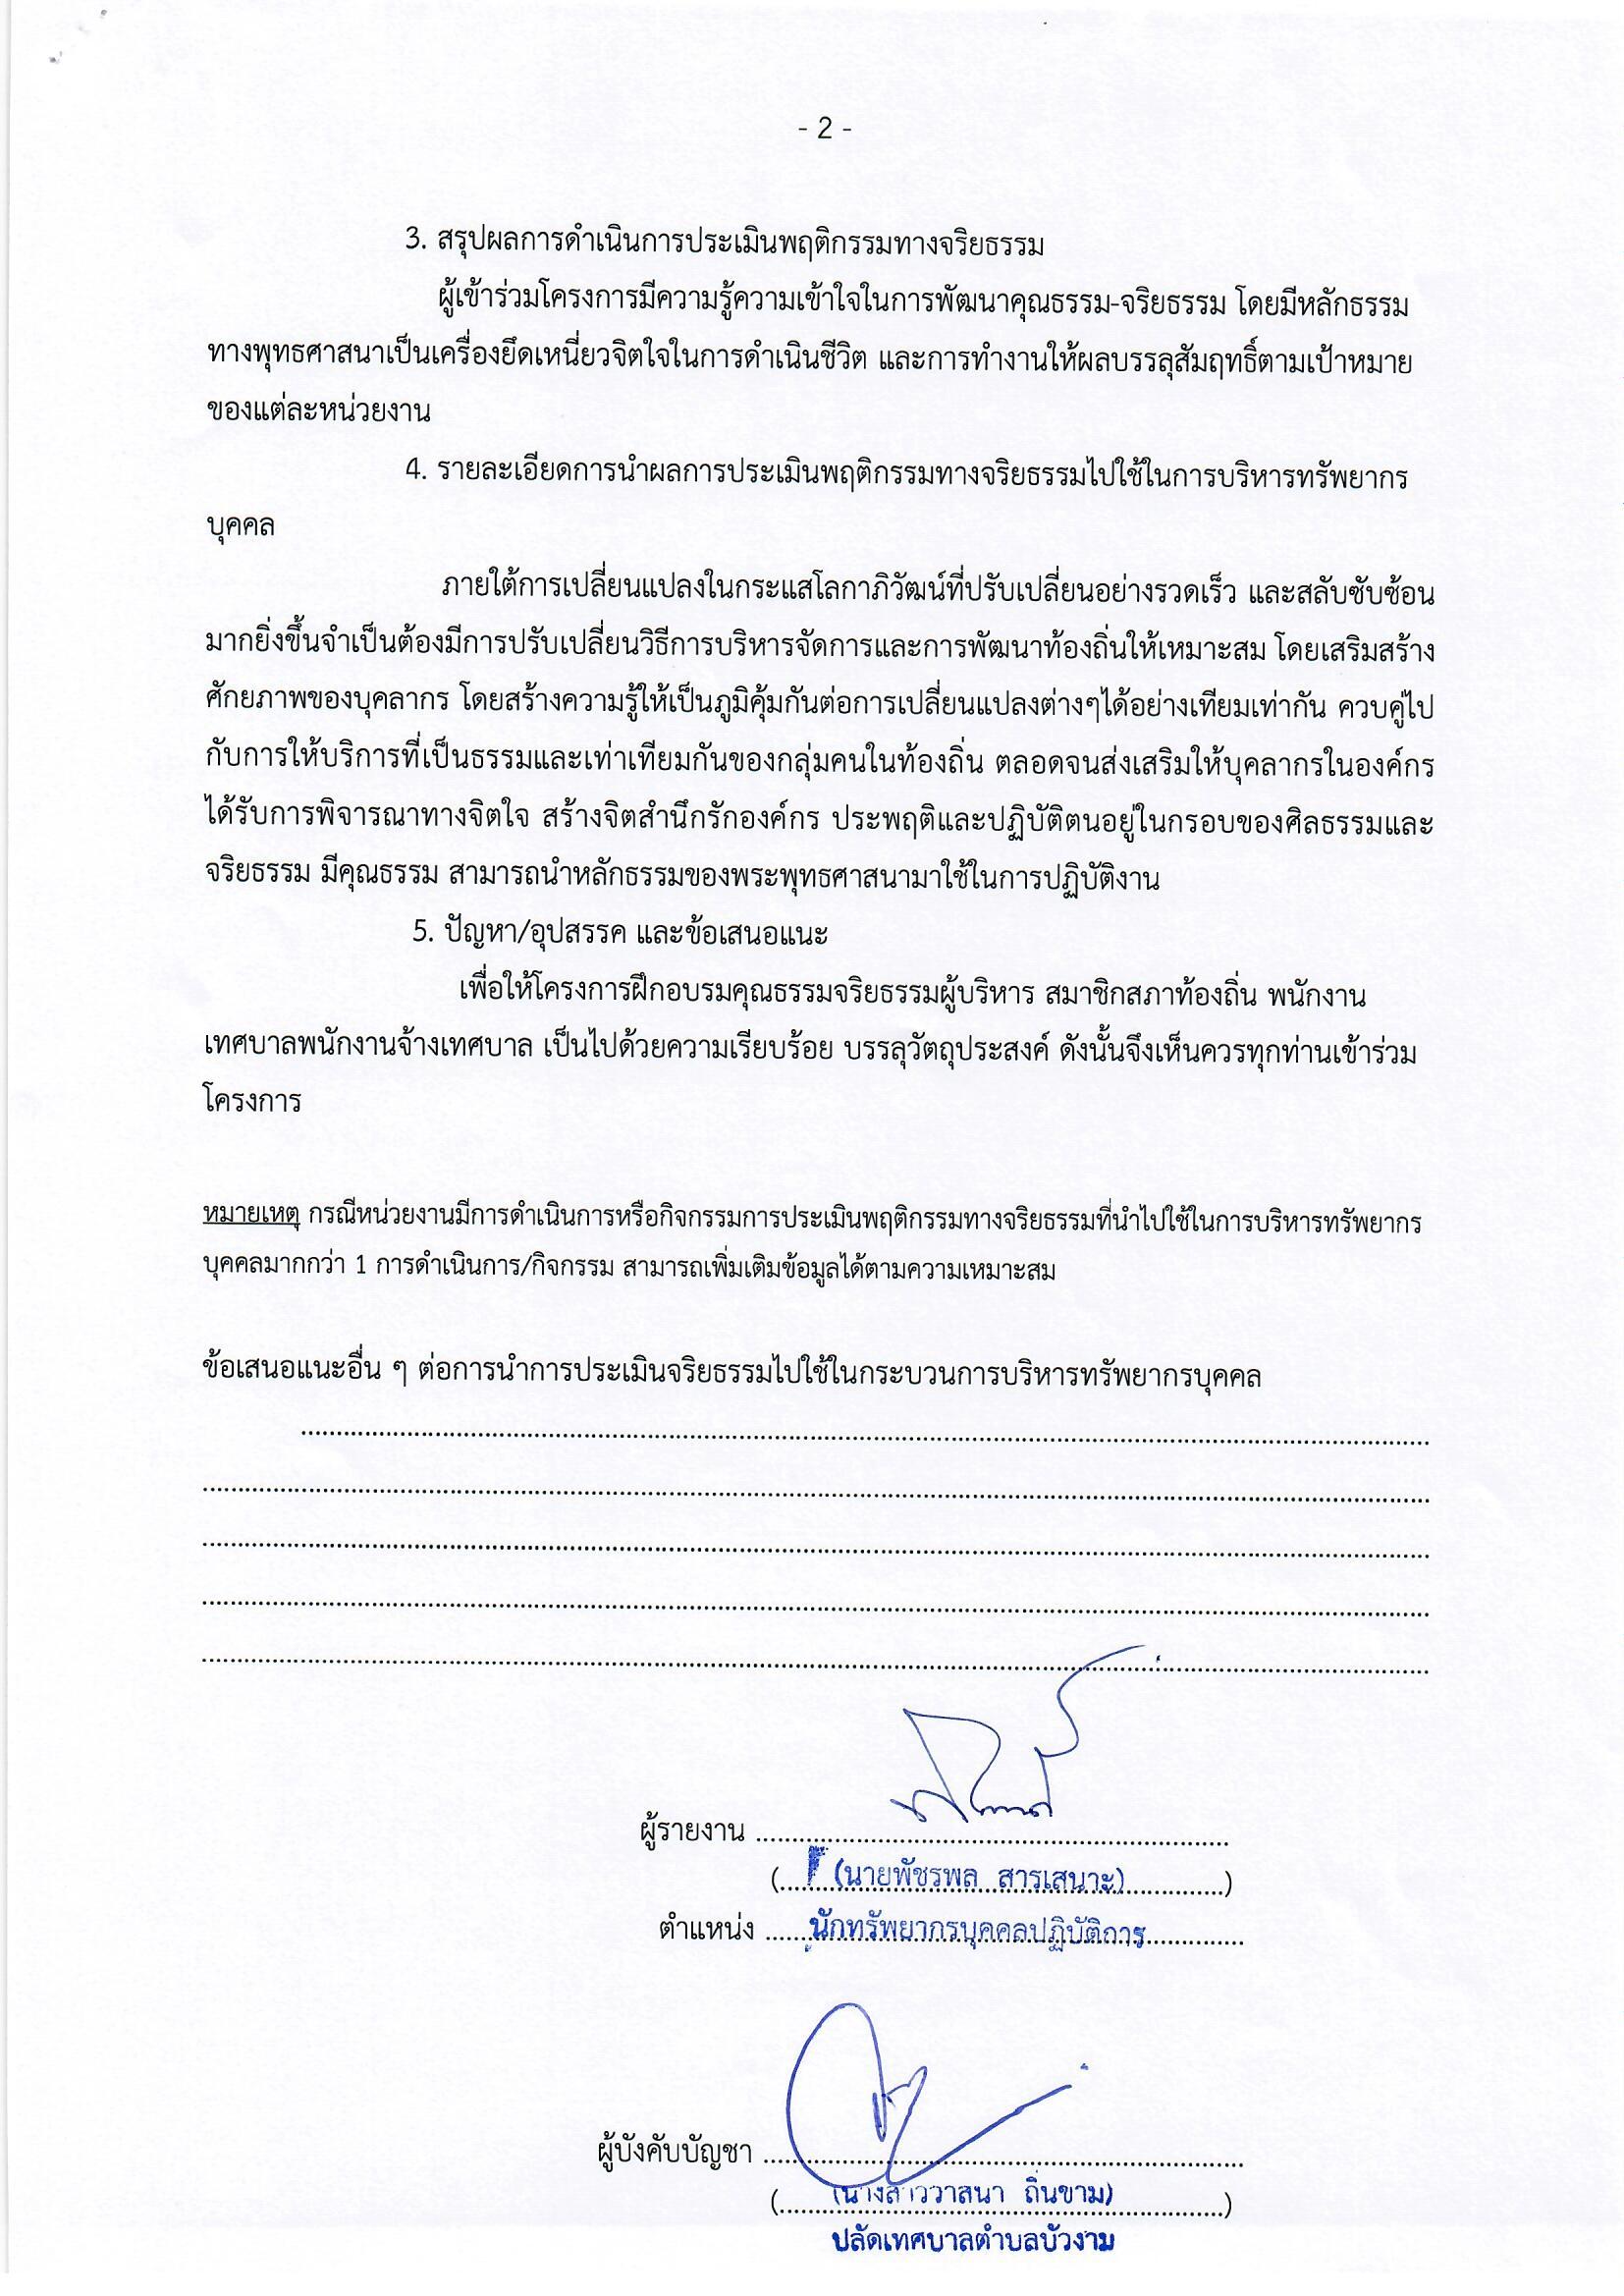 - 2 -
3. สรุปผลการดำเนินการประเมินพฤติกรรมทางจริยธรรม
ผู้เข้าร่วมโครงการมีความรู้ความเข้าใจในการพัฒนาคุณธรรม-จริยธรรม โดยมีหลักธรรม
ทางพุทธศาสนาเป็นเครื่องยึดเหนี่ยวจิตใจในการดำเนินชีวิต และการทำงานให้ผลบรรลุสัมฤทธิ์ตามเป้าหมาย
ของแต่ละหน่วยงาน
4. รายละเอียดการนำผลการประเมินพฤติกรรมทางจริยธรรมไปใช้ในการบริหารทรัพยากร
บุคคล
ภายใต้การเปลี่ยนแปลงในกระแสโลกาภิวัฒน์ที่ปรับเปลี่ยนอย่างรวดเร็ว และสลับซับซ้อน
มากยิ่งขึ้นจำเป็นต้องมีการปรับเปลี่ยนวิธีการบริหารจัดการและการพัฒนาท้องถิ่นให้เหมาะสม โดยเสริมสร้าง
ศักยภาพของบุคลากร โดยสร้างความรู้ให้เป็นภูมิคุ้มกันต่อการเปลี่ยนแปลงต่างๆได้อย่างเทียมเท่ากัน ควบคู่ไป
กับการให้บริการที่เป็นธรรมและเท่าเทียมกันของกลุ่มคนในท้องถิ่น ตลอดจนส่งเสริมให้บุคลากรในองค์กร
ได้รับการพิจารณาทางจิตใจ สร้างจิตสำนึกรักองค์กร ประพฤติและปฏิบัติตนอยู่ในกรอบของศิลธรรมและ
จริยธรรม มีคุณธรรม สามารถนำหลักธรรมของพระพุทธศาสนามาใช้ในการปฏิบัติงาน
5. ปัญหา/อุปสรรค และข้อเสนอแนะ
เพื่อให้โครงการฝึกอบรมคุณธรรมจริยธรรมผู้บริหาร สมาชิกสภาท้องถิ่น พนักงาน
เทศบาลพนักงานจ้างเทศบาล เป็นไปด้วยความเรียบร้อย บรรลุวัตถุประสงค์ ดังนั้นจึงเห็นควรทุกท่านเข้าร่วม
โครงการ
หมายเหตุ กรณีหน่วยงานมีการดำเนินการหรือกิจกรรมการประเมินพฤติกรรมทางจริยธรรมที่นำไปใช้ในการบริหารทรัพยากร
บุคคลมากกว่า 1 การดำเนินการ/กิจกรรม สามารถเพิ่มเติมข้อมูลได้ตามความเหมาะสม
ข้อเสนอแนะอื่น ๆ ต่อการนำการประเมินจริยธรรมไปใช้ในกระบวนการบริหารทรัพยากรบุคคล
ผู้รายงาน
(นายพัชรพล สารเสนาะ)
ตำแหน่ง นักทรัพยากรบุคคลปฏิบัติการ
ผู้บังคับบัญชา
(นางสาววาสนา ถิ่นขาม)
ปลัดเทศบาลตำบลบัวงาม